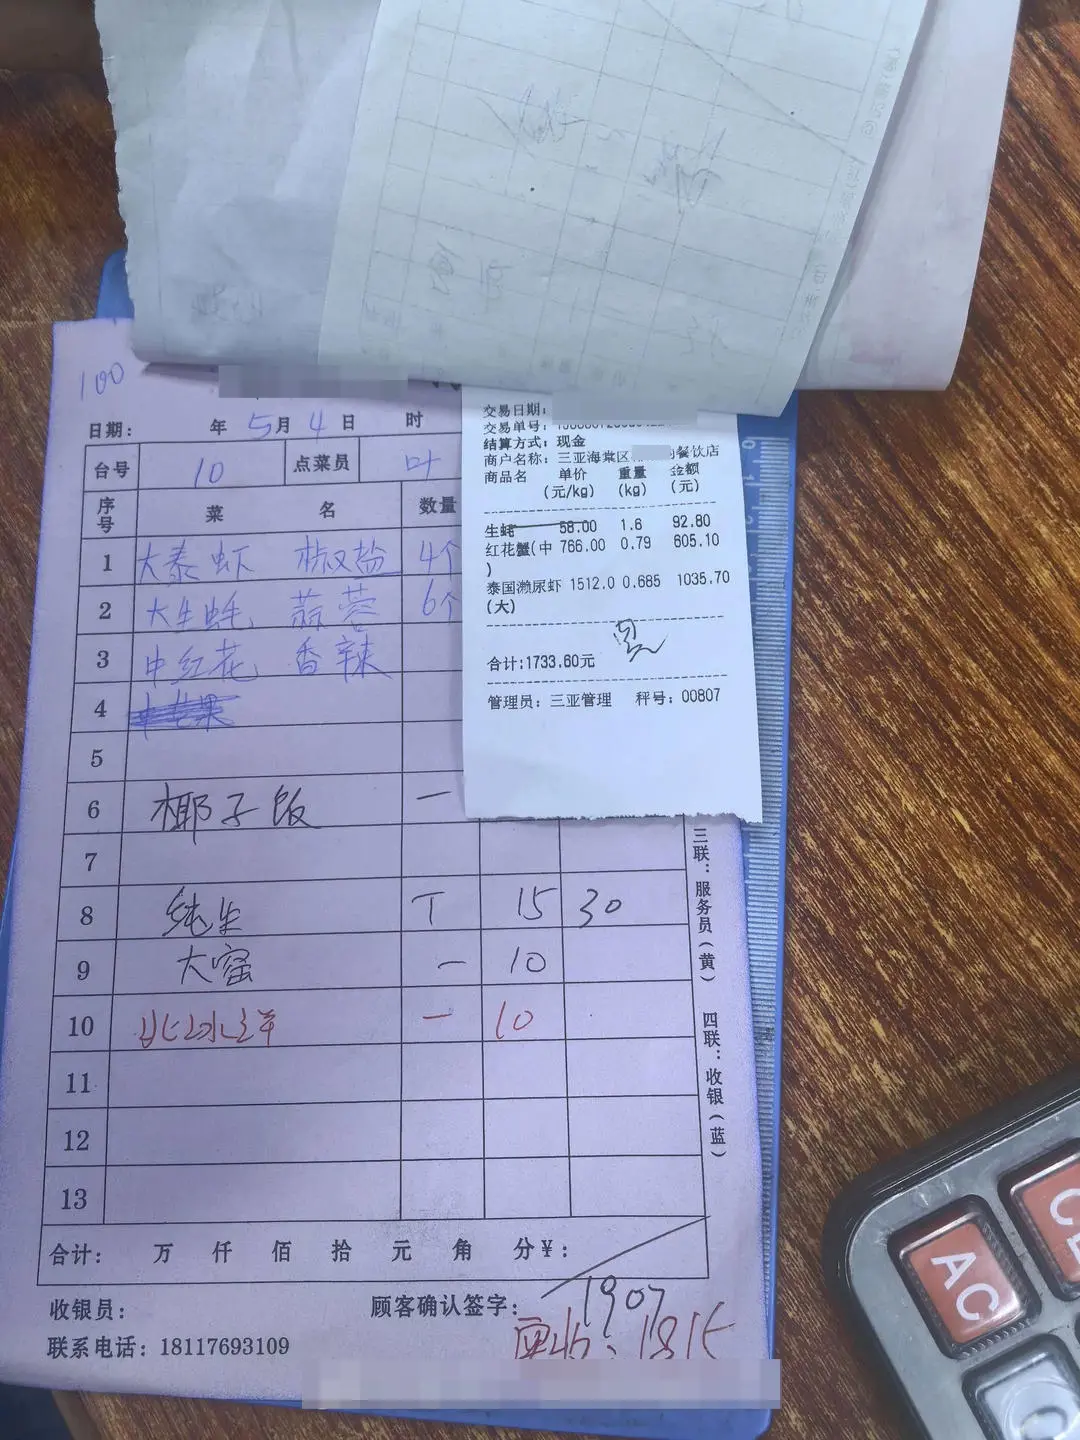 100
日期： 年 5月 4日 时
台号 10 点菜员 叶
序号 菜 名 数量
1 大泰虾 椒盐 4个
2 大生蚝 蒜蓉 6个
3 中红花 香辣
4
5
6 椰子饭 一
7
8 纯生 T 15 30
9 大窑 一 10
10 北冰洋 一 10
11
12
13
合计： 万 仟 佰 拾 元 角 分￥：
1907
收银员： 顾客确认签字：
实收：1815
联系电话：18117693109
三联：服务员（黄） 四联：收银（蓝）
交易日期：
交易单号：
结算方式：现金
商户名称：三亚海棠区 餐饮店
商品名 单价 重量 金额
(元/kg) (kg) (元)
生蚝 58.00 1.6 92.80
红花蟹(中 766.00 0.79 605.10
)
泰国濑尿虾 1512.0 0.685 1035.70
(大)
合计:1733.60元
管理员：三亚管理 秤号：00807
0 1 2
AC
CE